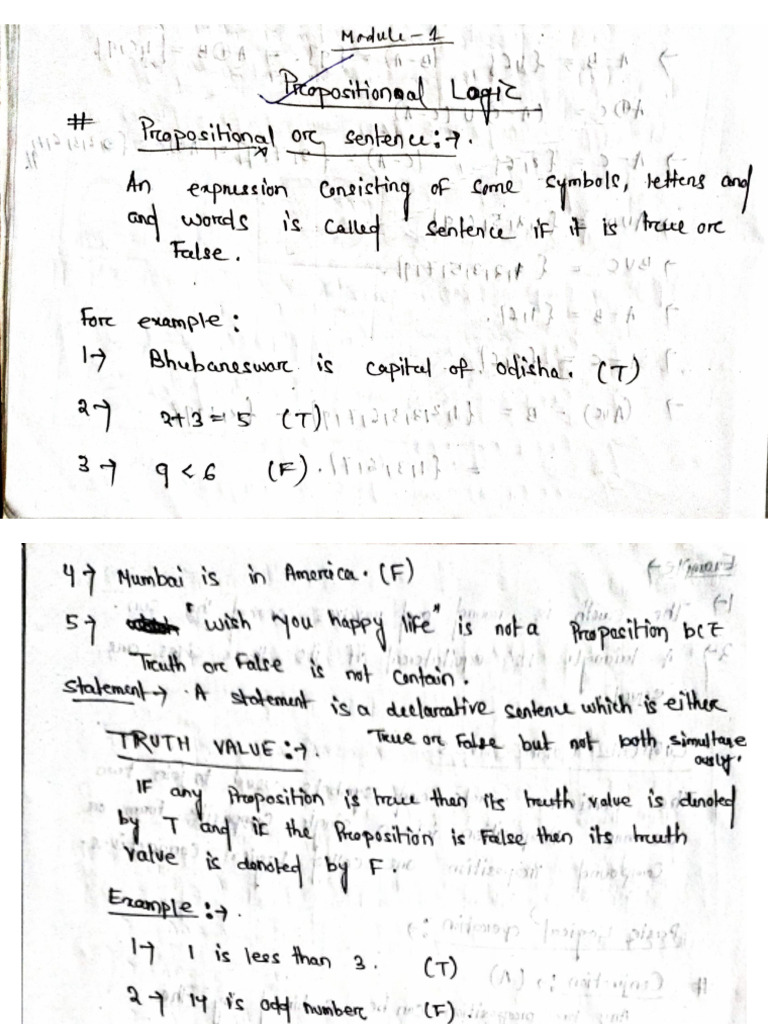 Module - 1
Propositional Logic
# Propositional orc sentence :→.
An expression consisting of some symbols, letters and
and words is called sentence if it is true orc
False.
Forc example :
1→ Bhubaneswarc is capital of odisha. (T)
2→ 2+3 = 5 (T)
3→ 9 < 6 (F).
4→ Mumbai is in America. (F)
5→ "wish you happy life" is not a Proposition bcz
Truth orc False is not contain.
Statement → . A statement is a declarative sentence which is either
True orc False but not both simultane
ously.
TRUTH VALUE :→.
IF any Proposition is true then its truth value is denoted
by T and if the Proposition is False then its truth
value is denoted by F.
Example :→.
1→ 1 is less than 3. (T)
2→ 14 is odd numberc (F)